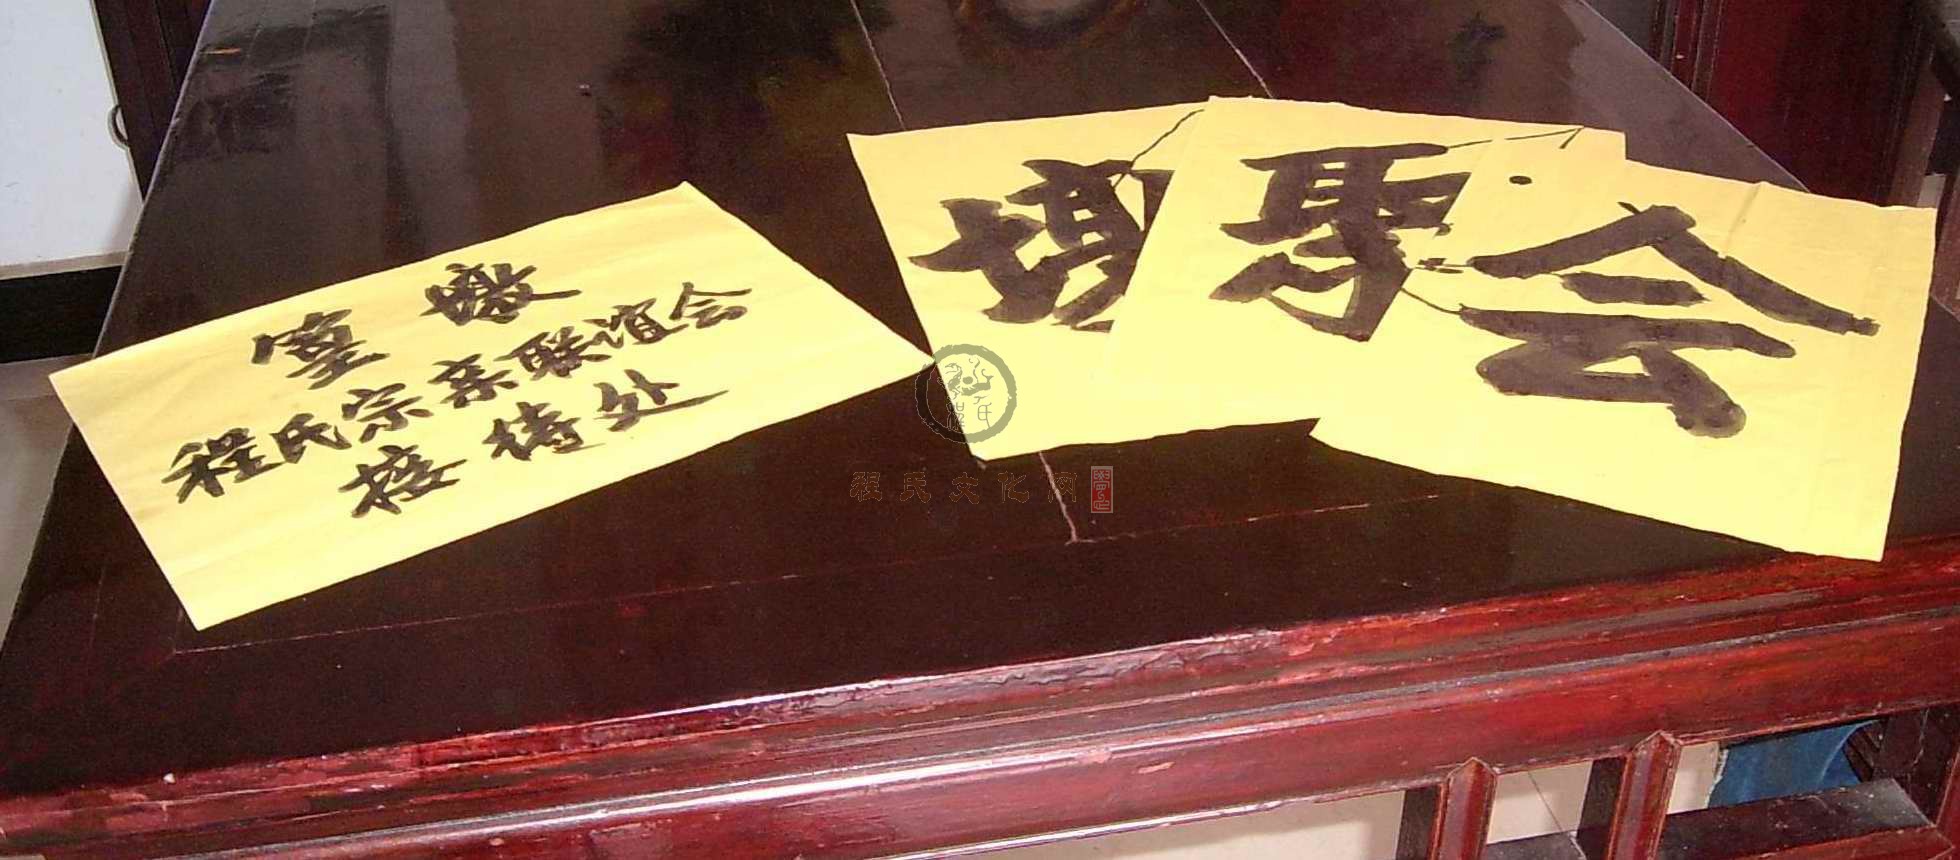 篁墩
程氏宗亲联谊会
接待处
聚
会
程氏文化网